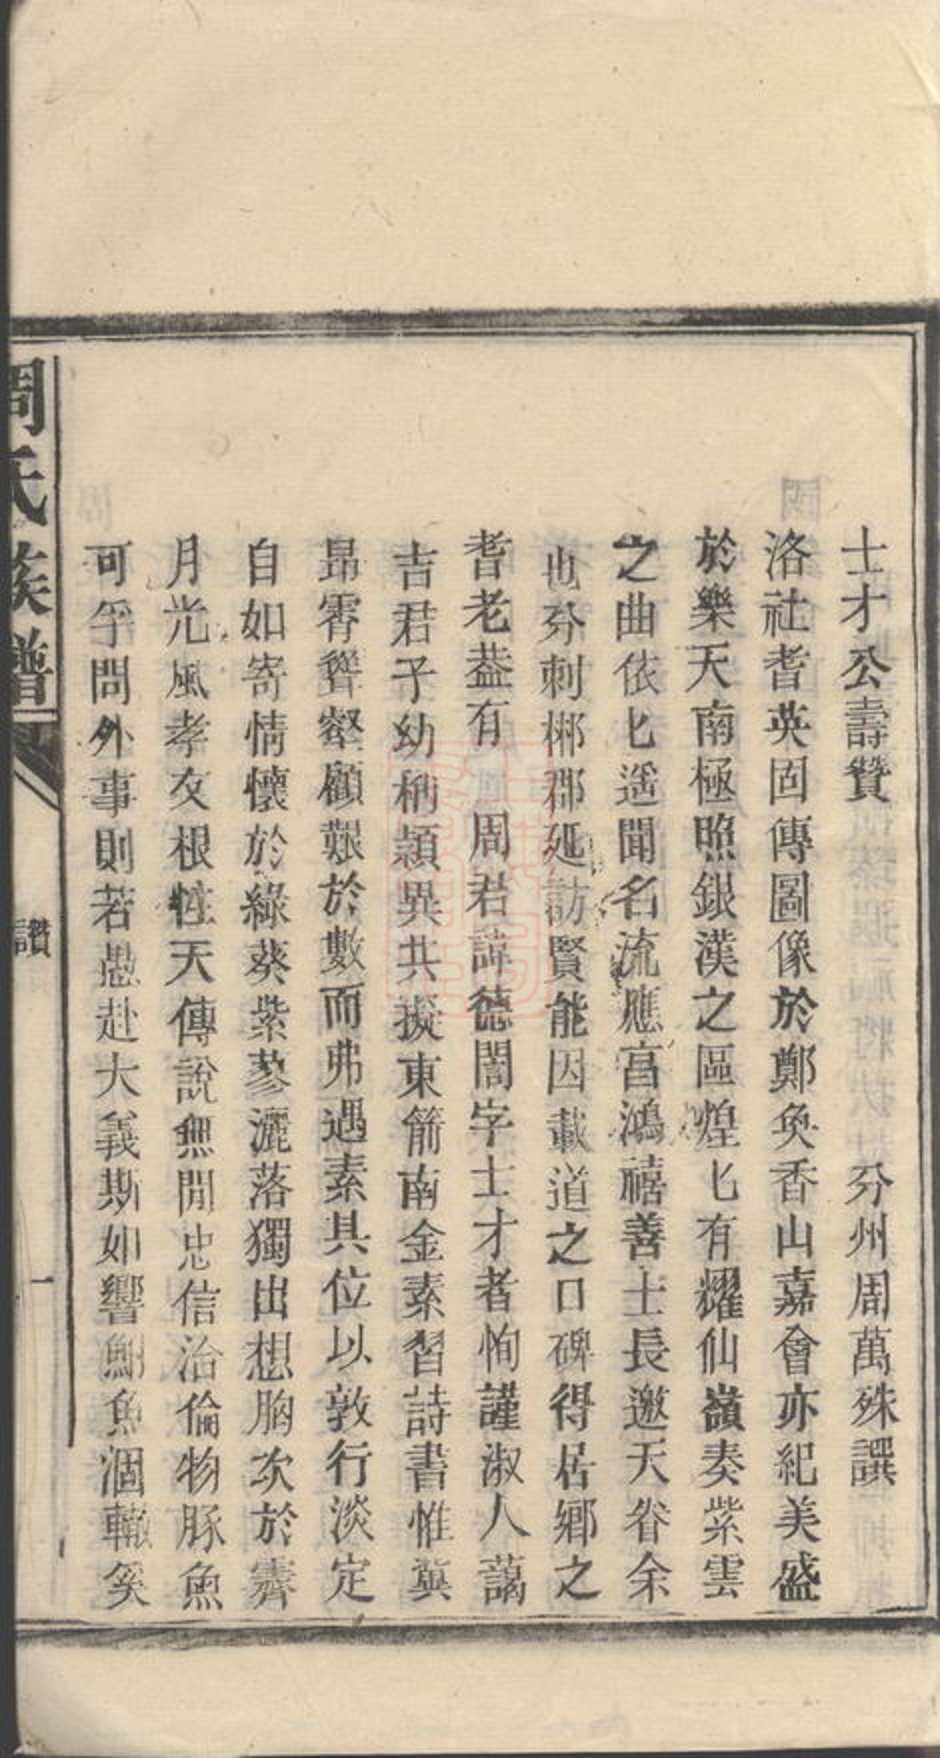 士才公壽贊 分州周萬殊譔
洛社耆英固傳圖像於鄭奐香山嘉會亦紀美盛
於樂天南極照銀漢之區煌匕有耀仙嶺奏紫雲
之曲依匕遥聞名流應高鴻禧善士長邀天眷余
也分刺郴郡延訪賢能因載道之口碑得居鄉之
耆老葢有 周君諱德闇字士才者恂謹淑人藹
吉君子幼稱穎異共擬東箭南金素習詩書惟冀
昻霄聳壑顧艱於數而弗遇素其位以敦行淡定
自如寄情懷於綠葵紫蓼灑落獨出想胸次於霽
月光風孝友根性天傳說無間忠信洽倫物豚魚
可孚問外事則若愚赴大義斯如響鮒魚涸轍奚
周氏族譜
讚
一